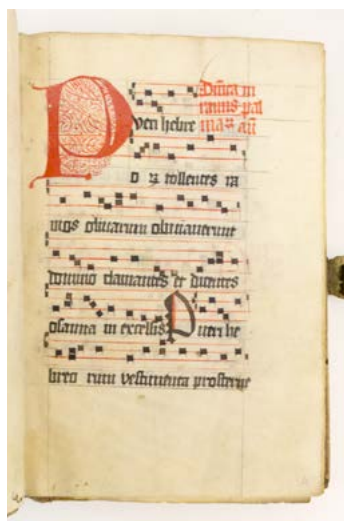 Dn̄ica in
ramis pal
Pueri hebre maꝝ añ
o ꝝ tollentes ra
mos oliuarum obuiauerunt
domino clamantes et dicentes
osanna in excelsis Pueri he
breo rum vestimenta prosterne